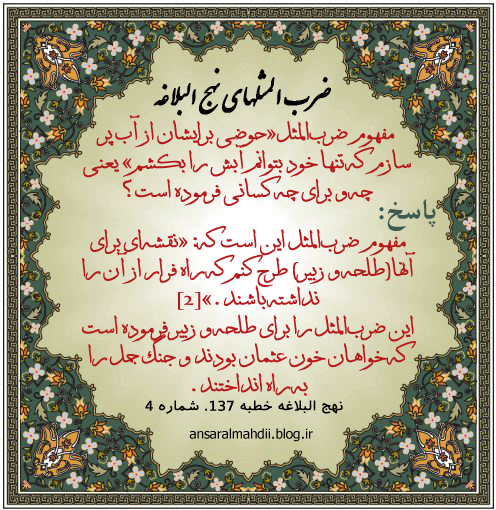 ضرب المثلهای نهج البلاغه
مفهوم ضرب‌المثل«حوضی برایشان از آب پر
سازم که تنها خود بتوانم آبش را بکشم» یعنی
چه و برای چه کسانی فرموده است؟
پاسخ:
مفهوم ضرب‌المثل این است که: «نقشه‌ای برای
آنها(طلحه و زبیر) طرح کنم که راه فرار از آن را
نداشته باشند .»[2]
این ضرب‌المثل را برای طلحه و زبیر فرموده است
که خواهان خون عثمان بودند و جنگ جمل را
به راه انداختند .
نهج البلاغه خطبه 137. شماره 4
ansaralmahdii.blog.ir